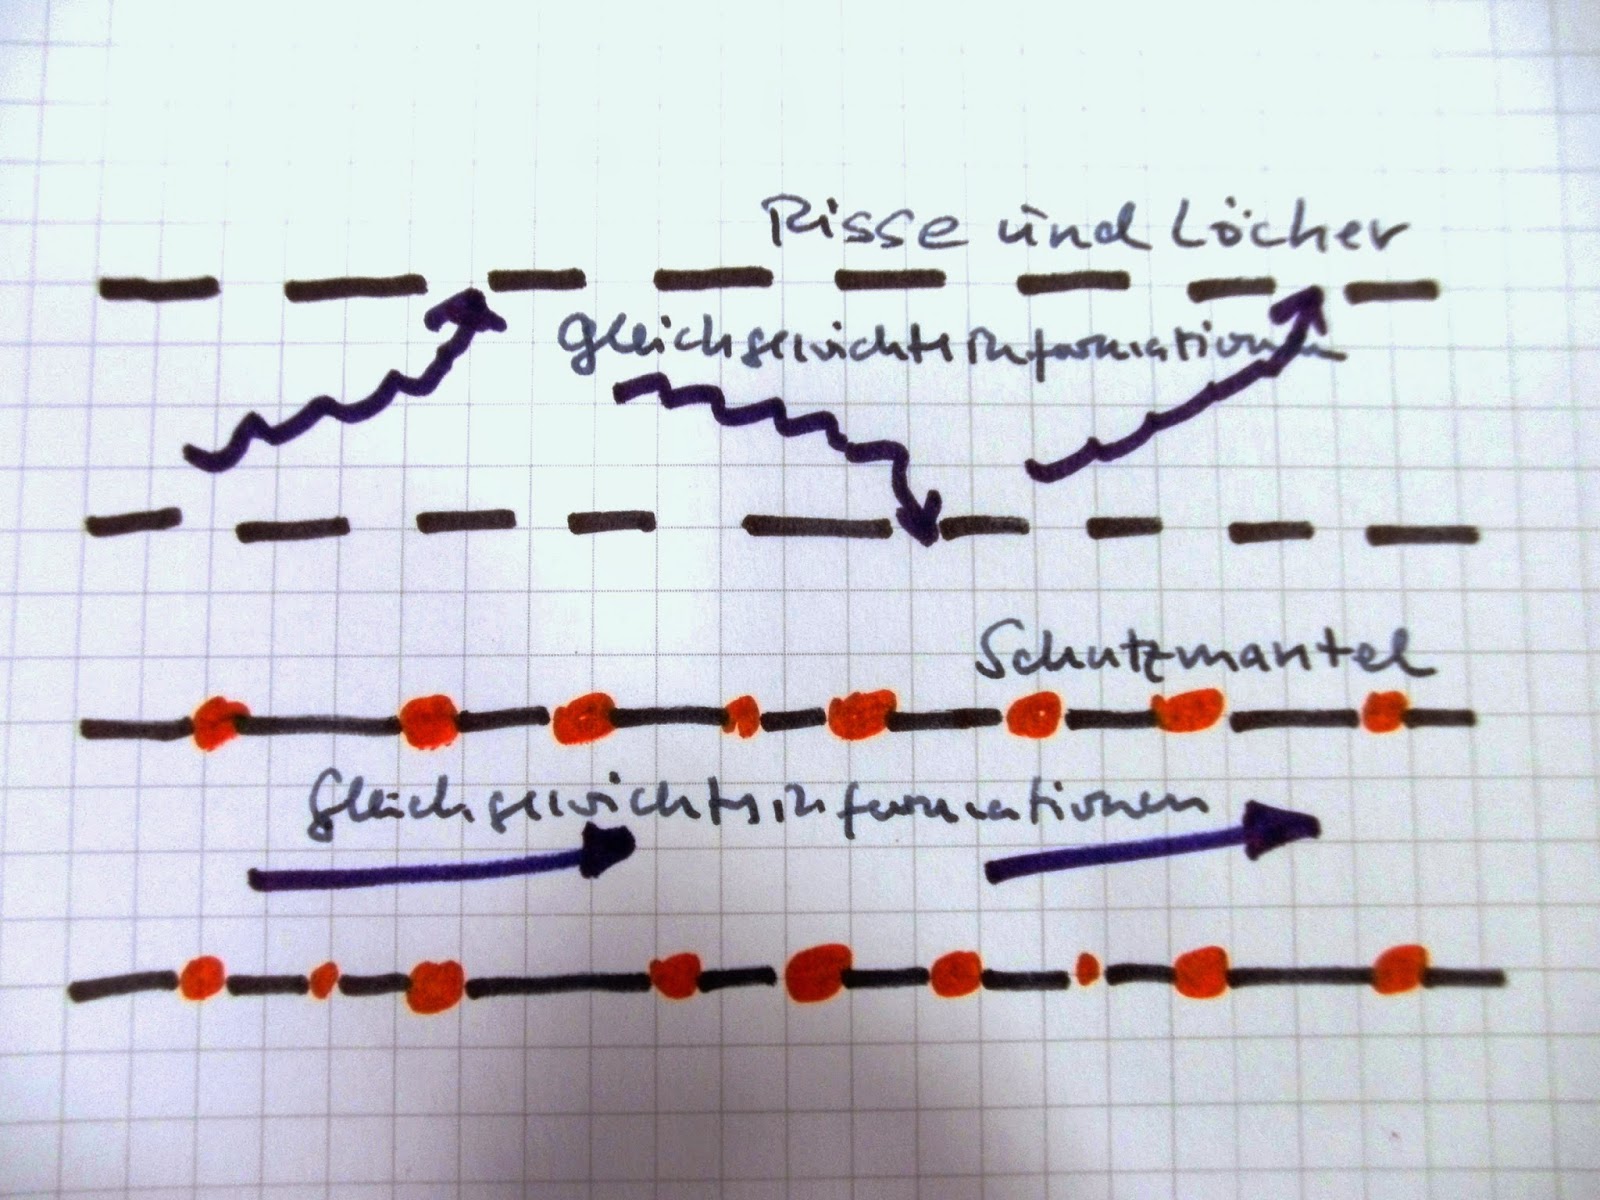 Risse und Löcher
Gleichgewichtsinformationen
Schutzmantel
Gleichgewichtsinformationen